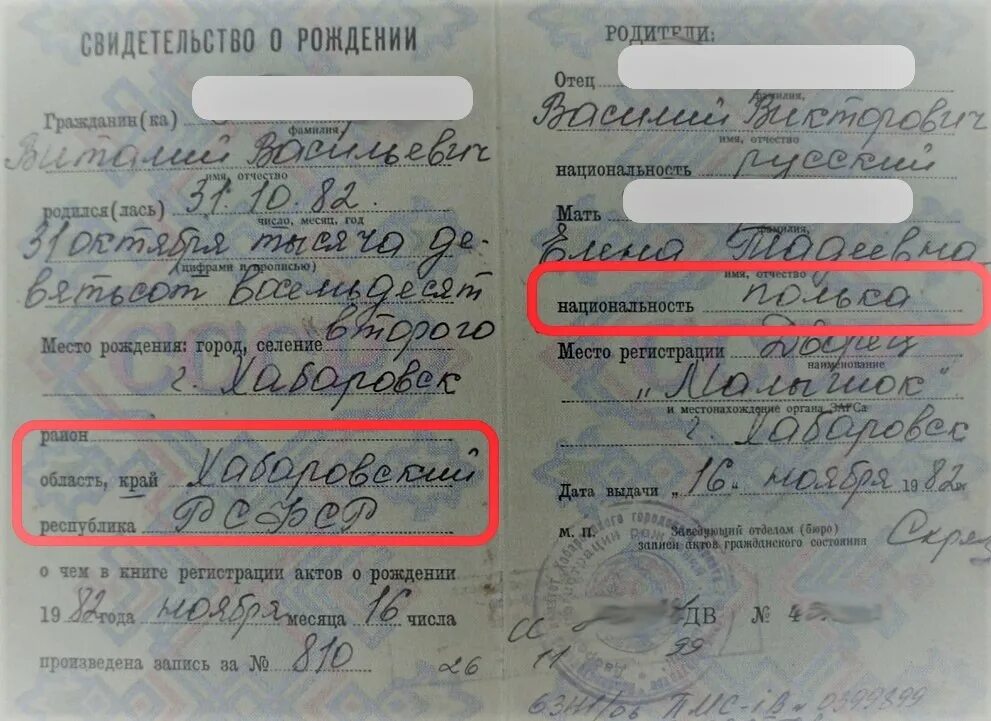 СВИДЕТЕЛЬСТВО О РОЖДЕНИИ
Гражданин(ка)
фамилия,
Виталий Васильевич
имя, отчество
родился(лась) 31.10.82.
число, месяц, год
31 октября тысяча де-
(цифрами и прописью)
вятьсот восемьдесят
второго
Место рождения: город, селение
г. Хабаровск
район
область, край Хабаровский
республика РСФСР
о чем в книге регистрации актов о рождении
1982 года ноября месяца 16 числа
произведена запись за № 810
26
РОДИТЕЛИ:
Отец
фамилия,
Василий Викторович
имя, отчество
национальность русский
Мать
фамилия,
Елена Тадеевна
имя, отчество
национальность полька
Место регистрации Дворец
наименование
"Малышок"
и местонахождение органа ЗАГСа
г. Хабаровск
Дата выдачи „16" ноября 1982 г.
М. П. Заведующий отделом (бюро)
записи актов гражданского состояния
ДВ №
11 99